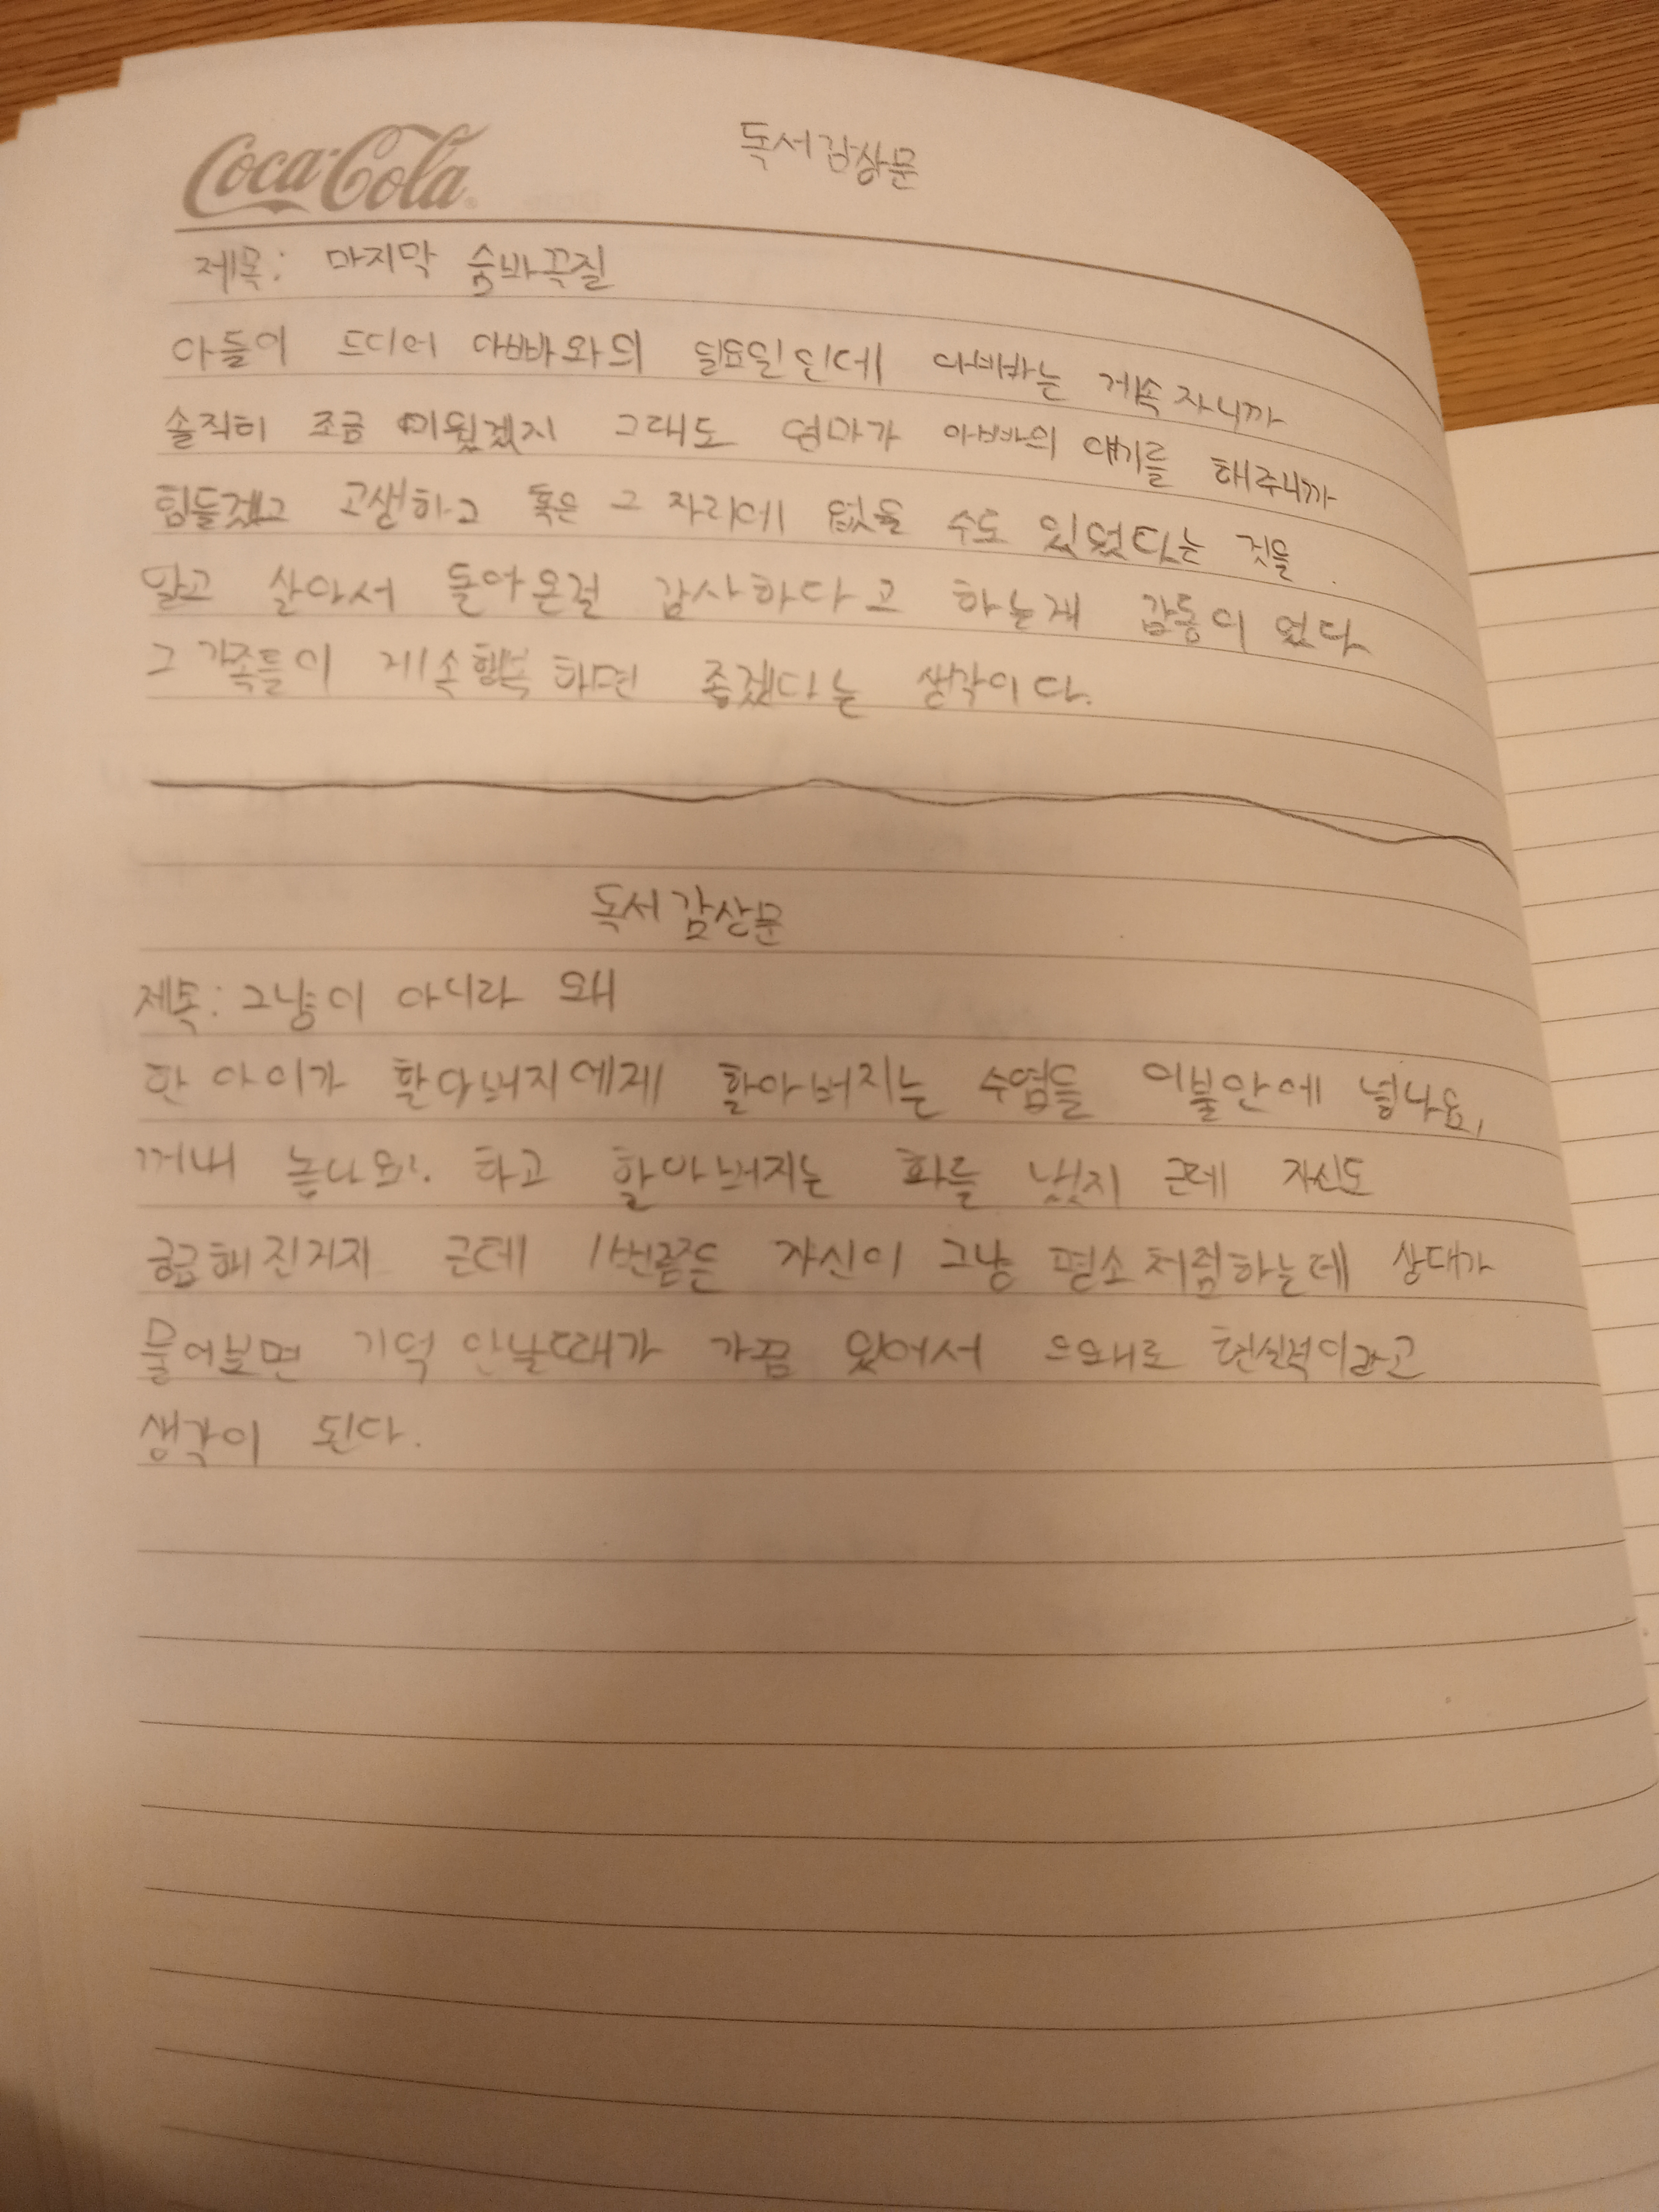 Coca-Cola
독서감상문
제목: 마지막 숨바꼭질
아들이 드디어 아빠와의 일요일인데 아빠는 게속 자니까
솔직히 조금 미웠겠지 그래도 엄마가 아빠의 얘기를 해주니까
힘들겠고 고생하고 혹은 그 자리에 없을 수도 있었다는 것을
알고 살아서 돌아온걸 감사하다고 하는게 감동이 었다
그 가족들이 게속행복 하면 좋겠다는 생각이다.
독서감상문
제목: 그냥이 아니라 왜
한 아이가 할아버지에게 할아버지는 수염을 이불안에 넣나요,
꺼내 놓나요?. 하고 할아버지는 화를 냈지 근데 자신도
궁금해진거지 근데 1번쯤은 자신이 그냥 평소처럼하는데 상대가
물어보면 기억 안날때가 가끔 있어서 으외로 현실적이라고
생각이 된다.